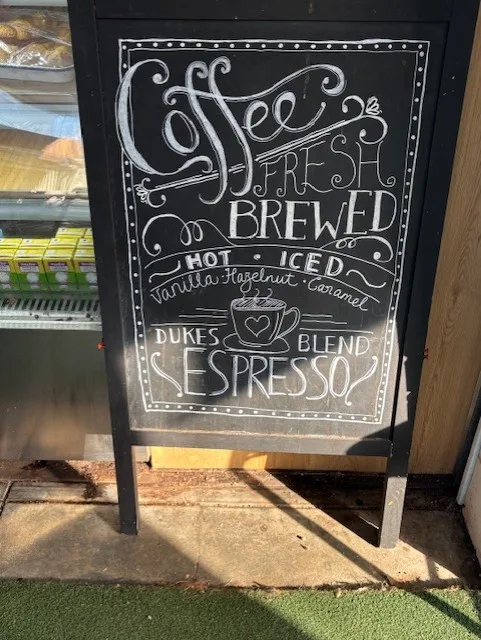 Coffee
FRESH
BREWED
HOT · ICED
Vanilla · Hazelnut · Caramel
DUKES BLEND
ESPRESSO